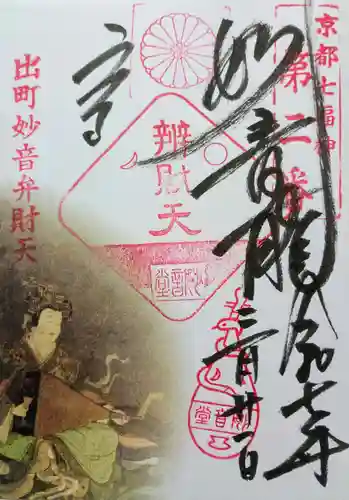 京都七福神
第二番
妙音
令和七年
三月廿一日
辨財天
妙音堂
妙音堂
出町妙音弁財天